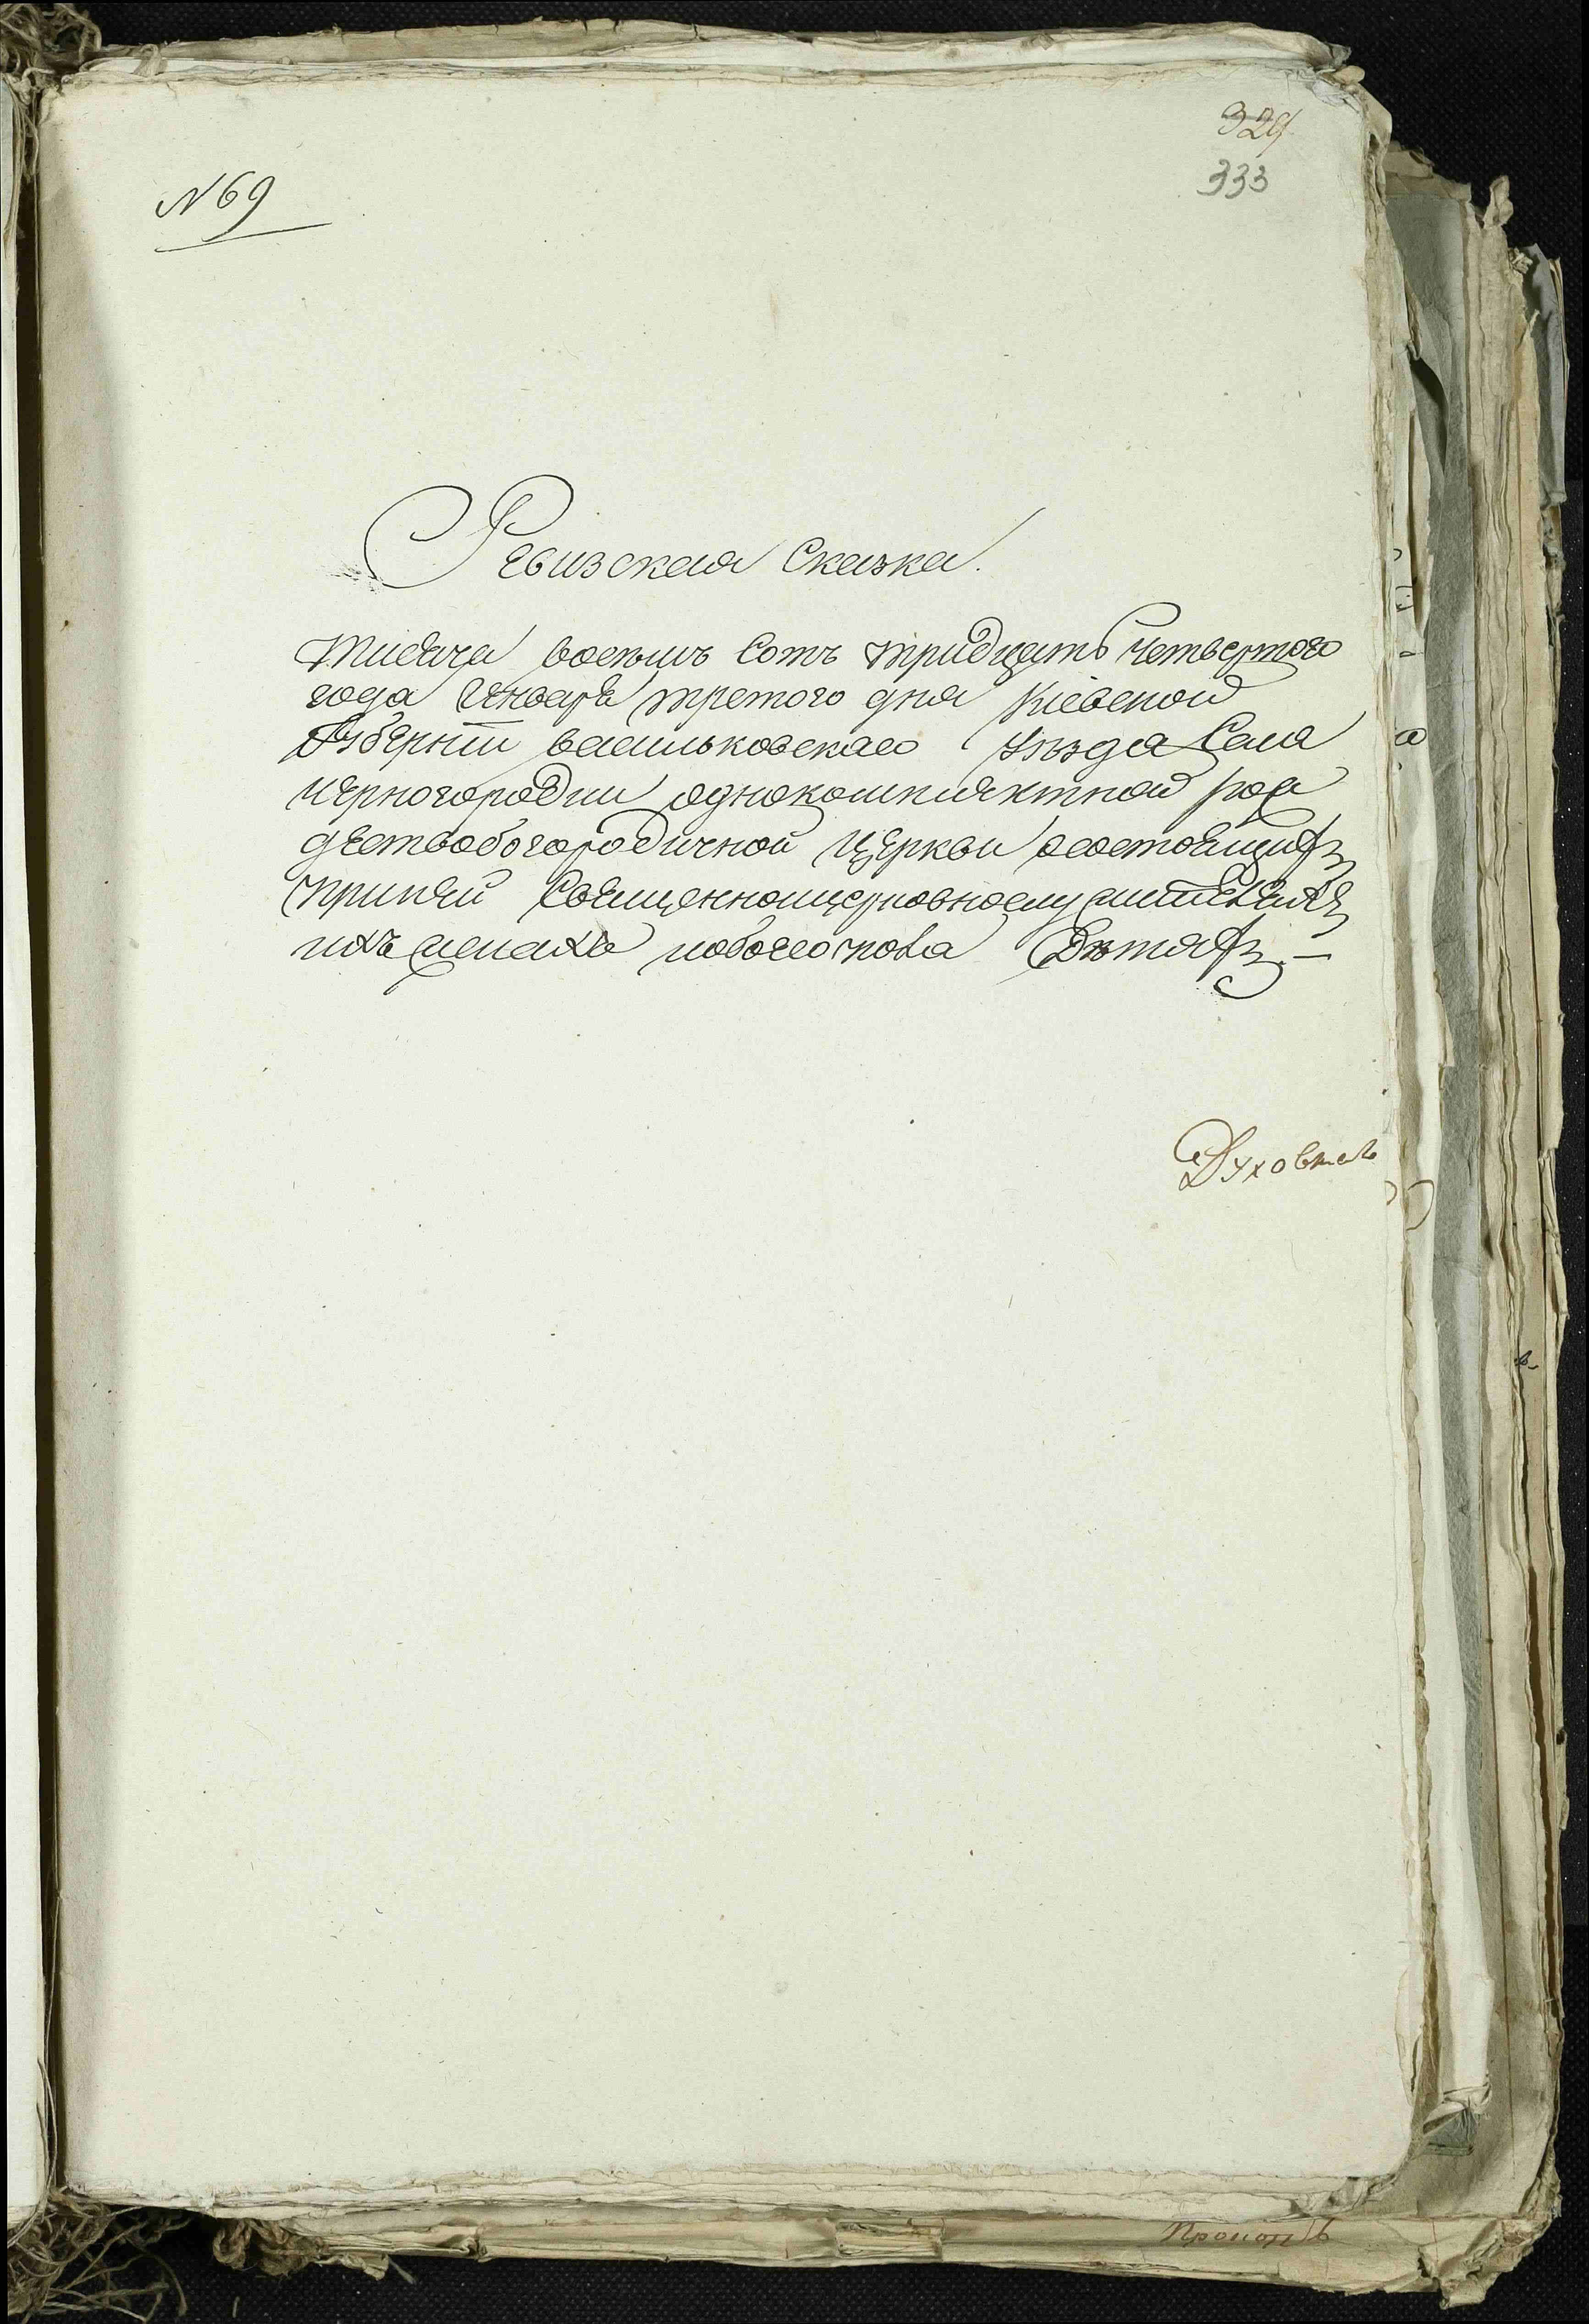 329
333
N 69
Ревизская Сказка.
Тисяча восемь Сотъ тридцать Четвертого
года Января третого дня Кіевской
Губерніи васильковскаго уезда Села
Черногородки однокомплектной рож
дествобогородичной Церкви осостоящихъ
припей Священноицерковнослужителяхъ
ихъ женахъ иобоего пола Дѣтяхъ. —